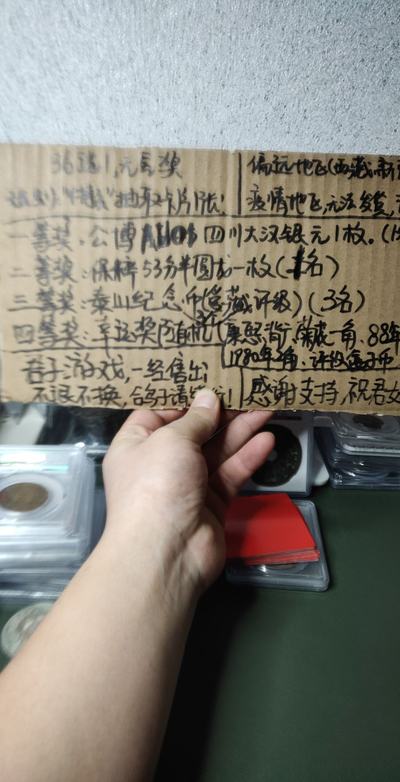 36选1,无空奖
偏远地区(西藏.新
抽取卡片1张!
疫情地区,无法发货,
一等奖.公博 四川大汉银元1枚.(1
二等奖:保粹53分半圆龙一枚(1名)
三等奖:泰山纪念币(宝藏评级)(3名)
四等奖:幸运奖
康熙背 一角.88年
1980年2角.评级盒子币
君子游戏,一经售出
不退不换,鸽子请绕行!
感谢支持,祝君女